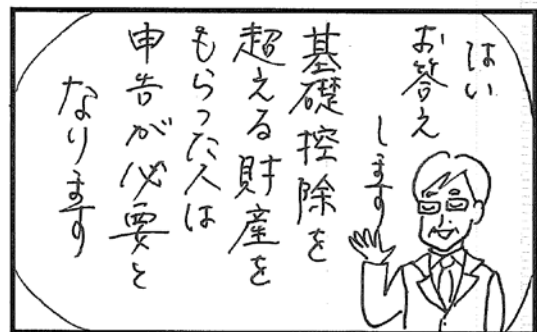 はい
お答え
します
基礎控除を
超える財産を
もらった人は
申告が必要と
なります